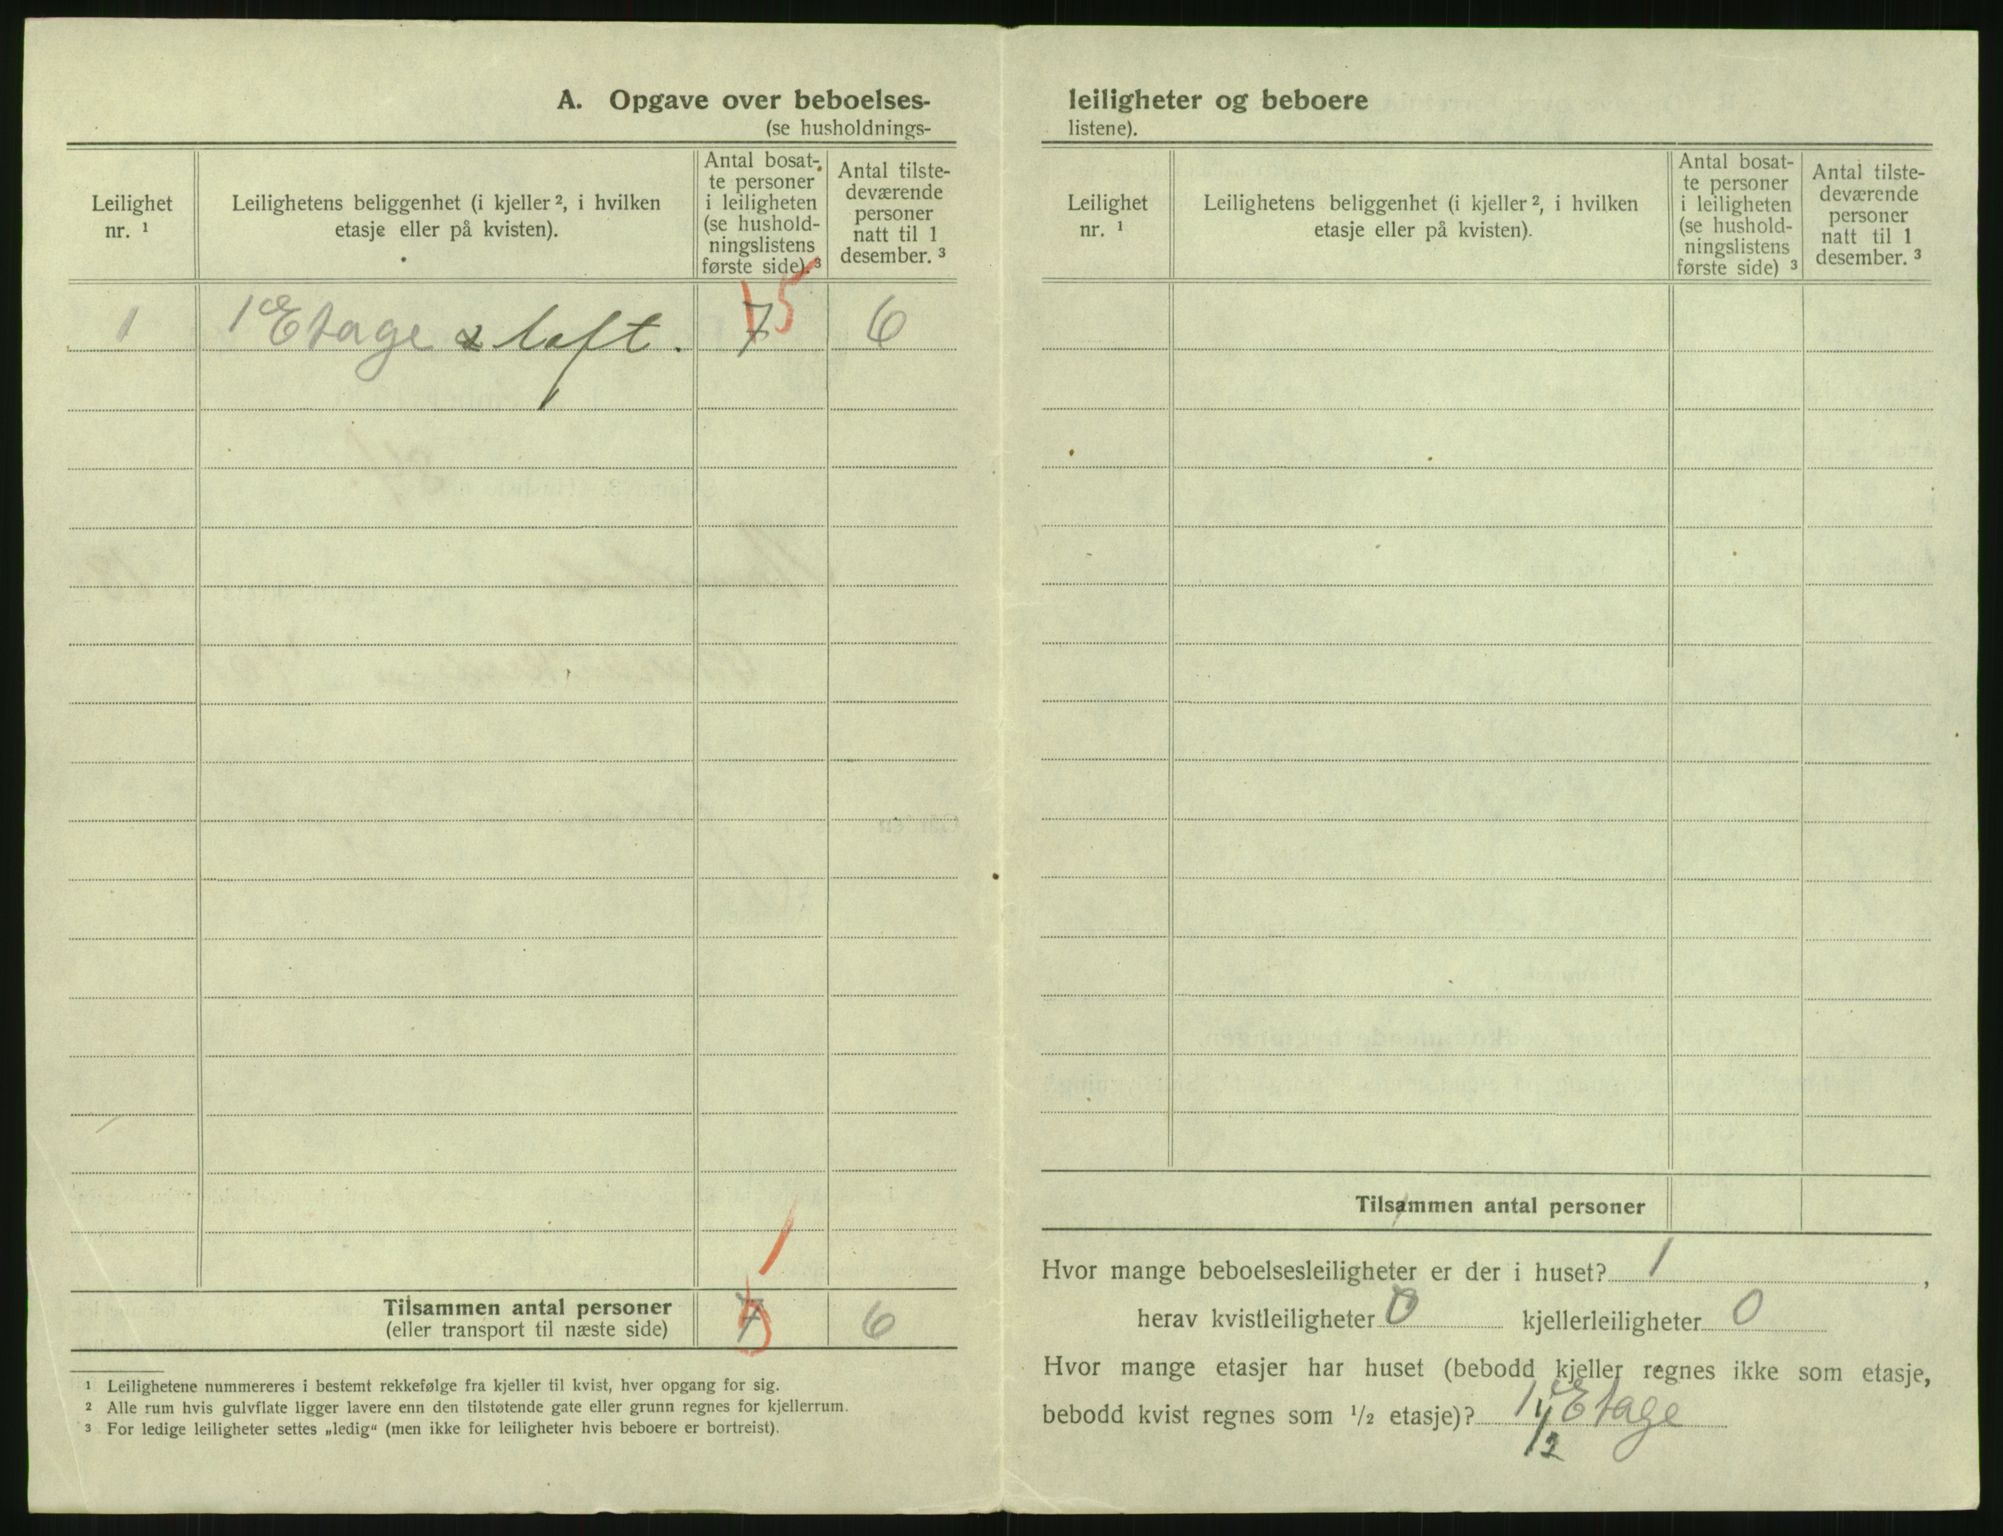 A. Opgave over beboelses-
(se husholdnings-
Leilighet
nr. ¹
Leilighetens beliggenhet (i kjeller ², i hvilken
etasje eller på kvisten).
Antal bosat-
te personer
i leiligheten
(se hushold-
ningslistens
første side). ³
Antal tilste-
deværende
personer
natt til 1
desember. ³
1 1 Etage & loft. 7 5 6
1
Tilsammen antal personer 7 6
(eller transport til næste side)
¹ Leilighetene nummereres i bestemt rekkefølge fra kjeller til kvist, hver opgang for sig.
² Alle rum hvis gulvflate ligger lavere enn den tilstøtende gate eller grunn regnes for kjellerrum.
³ For ledige leiligheter settes „ledig“ (men ikke for leiligheter hvis beboere er bortreist).
leiligheter og beboere
listene).
Leilighet
nr. ¹
Leilighetens beliggenhet (i kjeller ², i hvilken
etasje eller på kvisten).
Antal bosat-
te personer
i leiligheten
(se hushold-
ningslistens
første side) ³
Antal tilste-
deværende
personer
natt til 1
desember. ³
Tilsammen antal personer
Hvor mange beboelsesleiligheter er der i huset? 1 ,
herav kvistleiligheter 0 kjellerleiligheter 0
Hvor mange etasjer har huset (bebodd kjeller regnes ikke som etasje,
bebodd kvist regnes som ½ etasje)? 1 ½ Etage